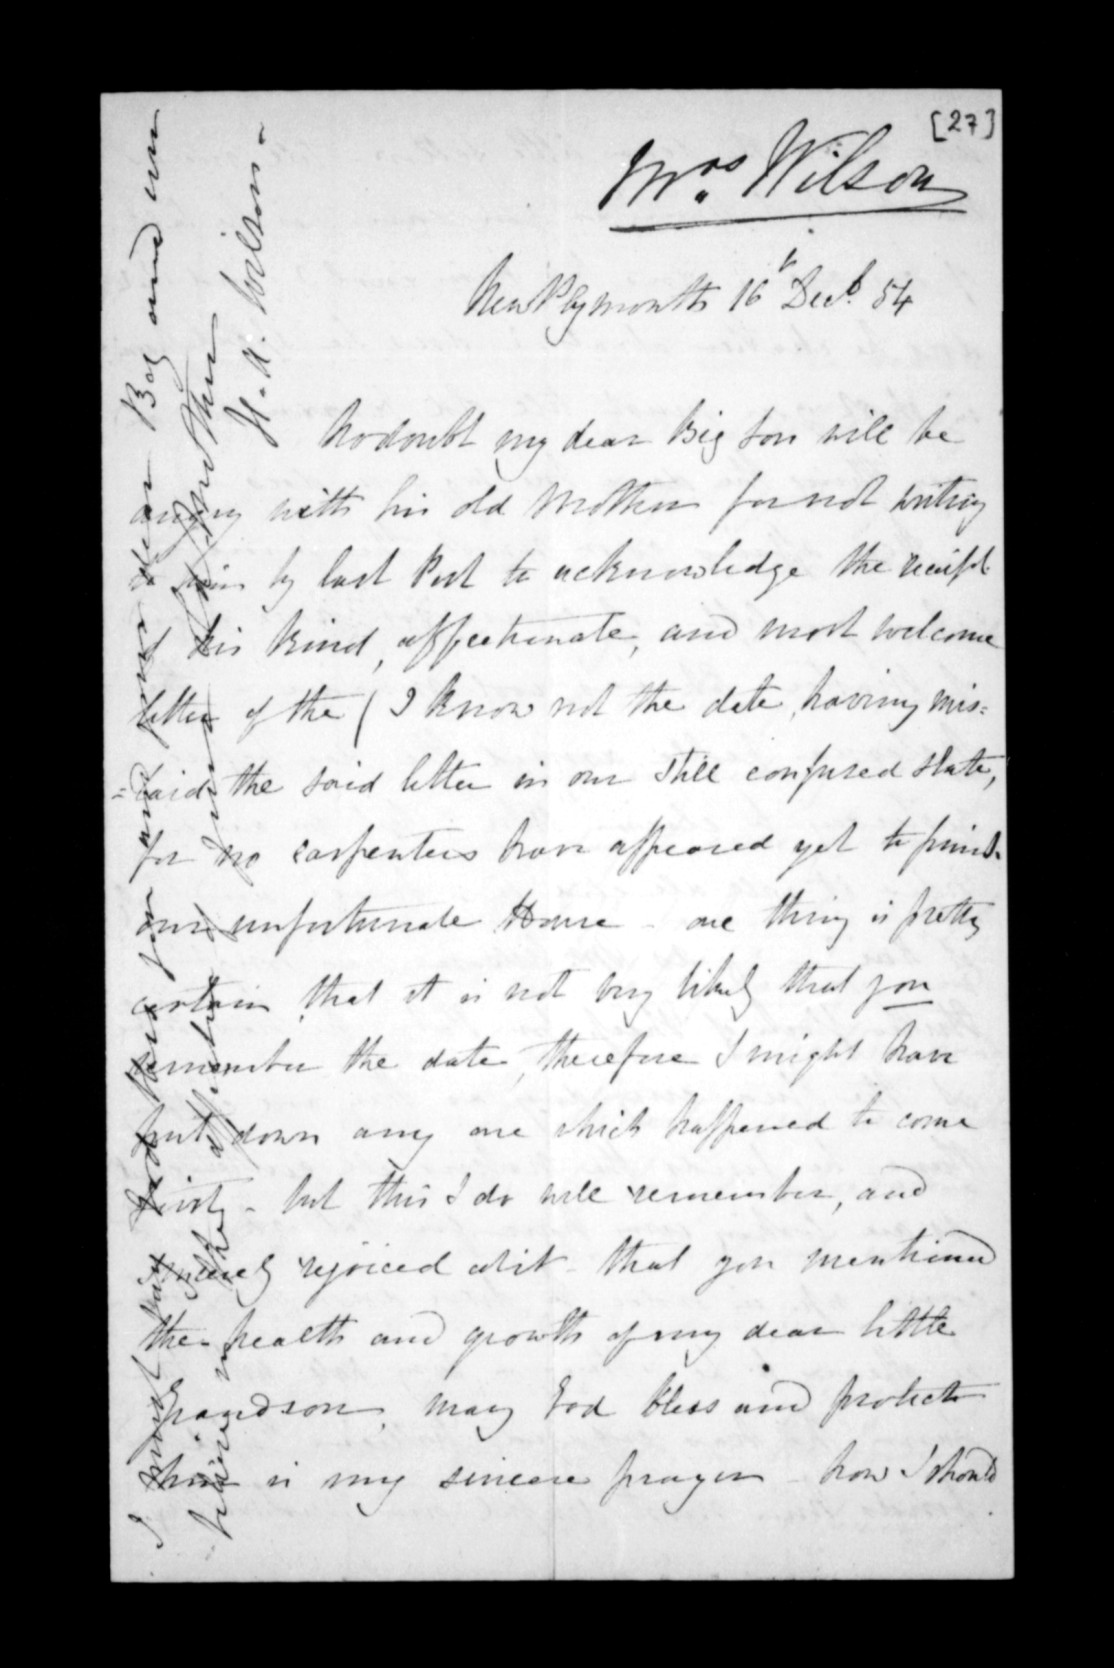 [27]
Mrs. Wilson
New Plymouth 16th Decr. 54
No doubt my dear Big Son will be
angry with his old Mother for not writing
to him by last Post to acknowledge the receipt
of his kind, affectionate, and most welcome
letter of the ( I know not the date, having mis=
=laid the said letter in our still confused state,
for no carpenters have appeared yet to finish
our unfortunate House - one thing is pretty
certain, that it is not very likely that you
remember the date, therefore I might have
put down any one which happened to come
first - but this I do well remember, and
sincerely rejoiced at it - that you mentioned
the health and growth of my dear little
Grandson, may God bless and protect
him is my sincere prayer - how I should
I must say God bless you and your dear Boy and
believe me the affectionate
Mother
H. A. Wilson -